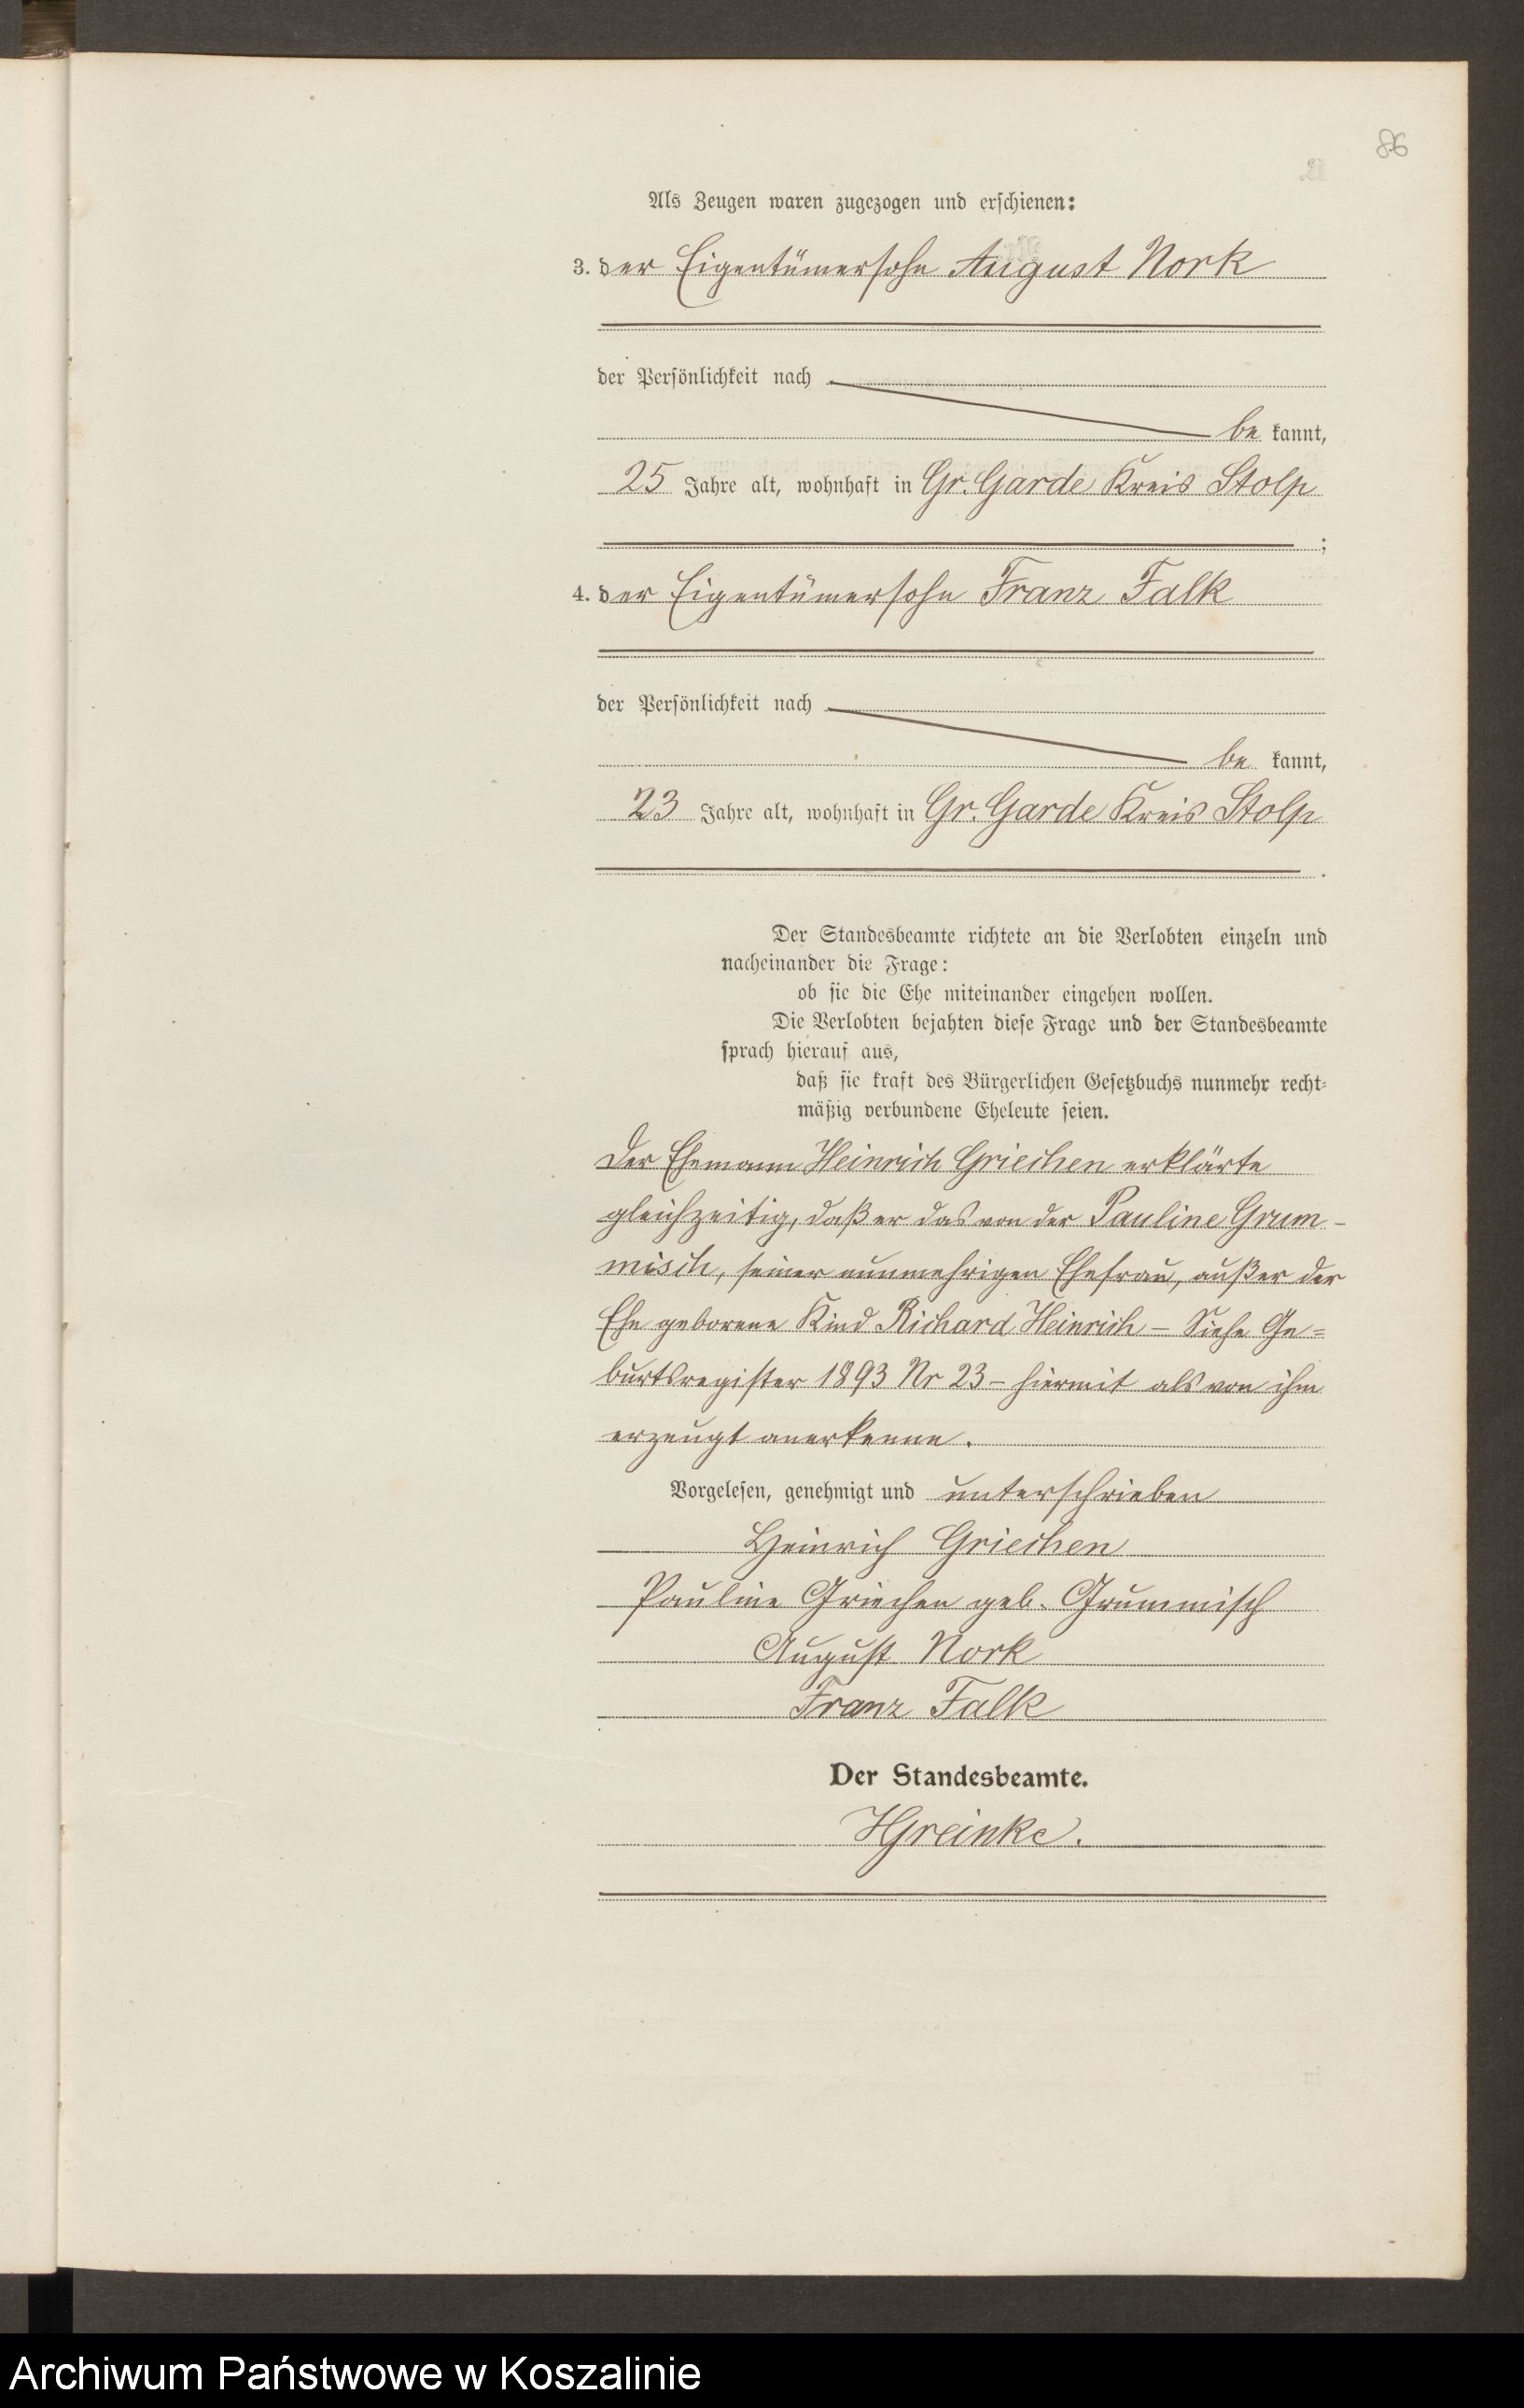 86
Als Zeugen waren zugezogen und erschienen:
3. der Eigentümersohn August Nork
der Persönlichkeit nach
be kannt,
25 Jahre alt, wohnhaft in Gr. Garde Kreis Stolp
;
4. der Eigentümersohn Franz Falk
der Persönlichkeit nach
be kannt,
23 Jahre alt, wohnhaft in Gr. Garde Kreis Stolp
.
Der Standesbeamte richtete an die Verlobten einzeln und
nacheinander die Frage:
ob sie die Ehe miteinander eingehen wollen.
Die Verlobten bejahten diese Frage und der Standesbeamte
sprach hierauf aus,
daß sie kraft des Bürgerlichen Gesetzbuchs nunmehr recht-
mäßig verbundene Eheleute seien.
Der Ehemann Heinrich Griechen erklärte
gleichzeitig, daß er das von der Pauline Grum-
misch, seiner nunmehrigen Ehefrau, außer der
Ehe geborene Kind Richard Heinrich – Siehe Ge=
burtsregister 1893 Nr 23 – hiermit als von ihm
erzeugt anerkenne.
Vorgelesen, genehmigt und unterschrieben
Heinrich Griechen
Pauline Griechen geb. Grummisch
August Nork
Franz Falk
Der Standesbeamte.
HGreinke.
Archiwum Państwowe w Koszalinie